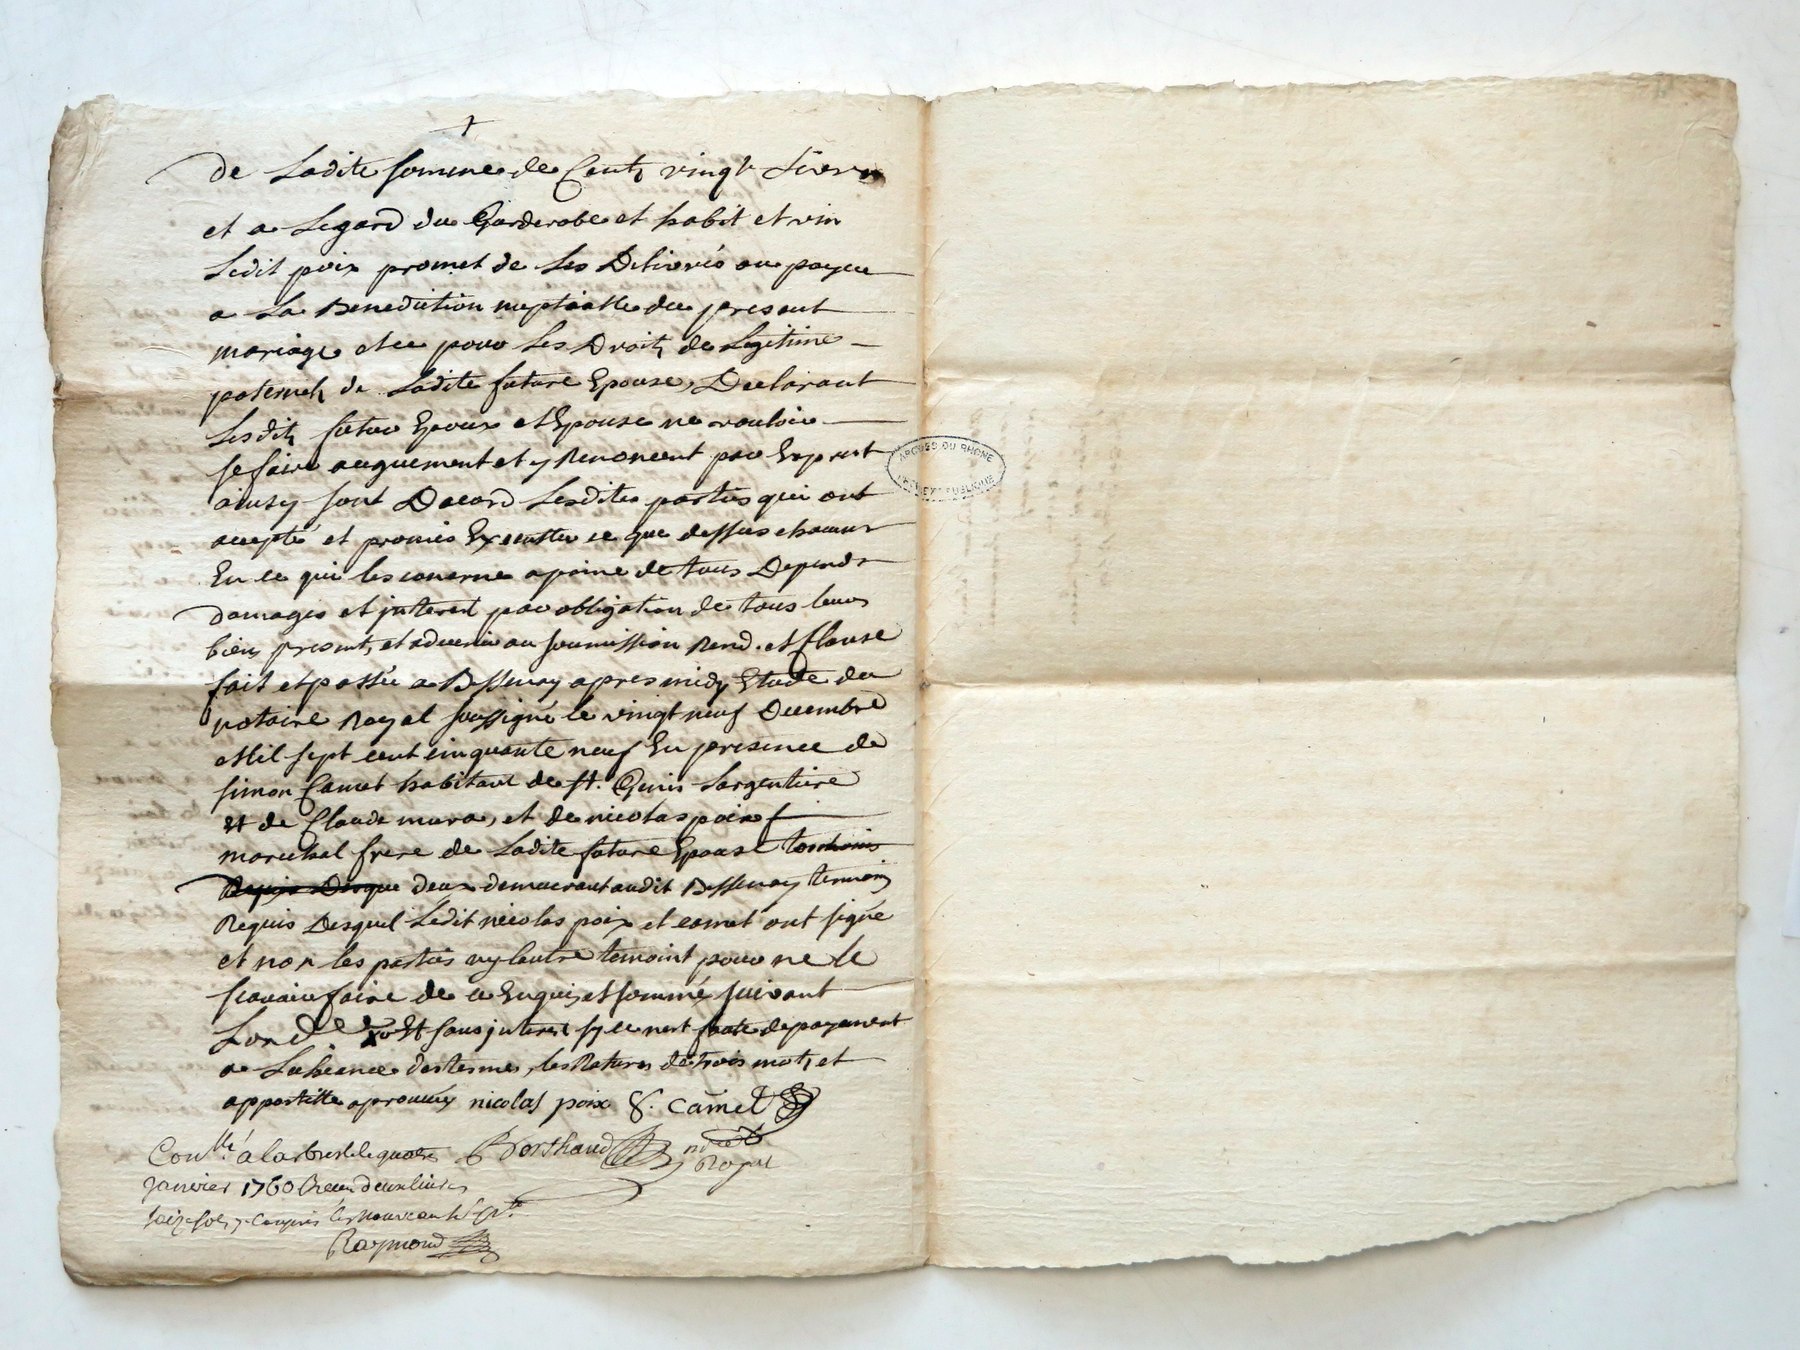 de Ladite somme de Cents vingt Livres
et a Legard du Garderobe et habit et vin
Ledit poix promet de Les Delivrés ou payer
a La Benediction nuptialle du present
mariage et ce pour Les Droits de Legitime
paternels de Ladite future Epouse, Declarant
Lesdits futur Epoux et Epouse ne vouloir
se faire auguement et y Renoncent par Exprest
ainsy sont Dacord Lesdites parties qui ont
accepté et promis Executter ce que dessus chacuns
En ce qui les concerne a peine de tous Depends
domages et interest par obligation de tous leurs
biens presents et advenir ou soumission Rend. et Clause
fait et passée a Bessenay apres midy Etude du
notaire Royal soussigné le vingt neuf Decembre
Mil sept cent cinquante neuf En presence de
simon Camet habitant de St. Genis Largentiere
et de Claude mura, et de nicolas poix
marechal frere de Ladite future Epouse temoins
Requis Desque deux demeurant audit Bessenay temoins
Requis Desquel Ledit nicolas poix et camet ont signé
et non les parties ny lautre temoint pour ne le
scavoir faire de ce Enquis et sommés suivant
Lord et sans interest sy ce nest faute de payement
a Lecheance des termes, les Ratures de trois mots et
appostille aprouvées nicolas poix S. camet
Conllé. a larbresle le quatre Berthaud nre
Janvier 1760 Receu deux livres Royal
seize sols y compris les nouveau s
Raymond
ARCHVES DU RHONE